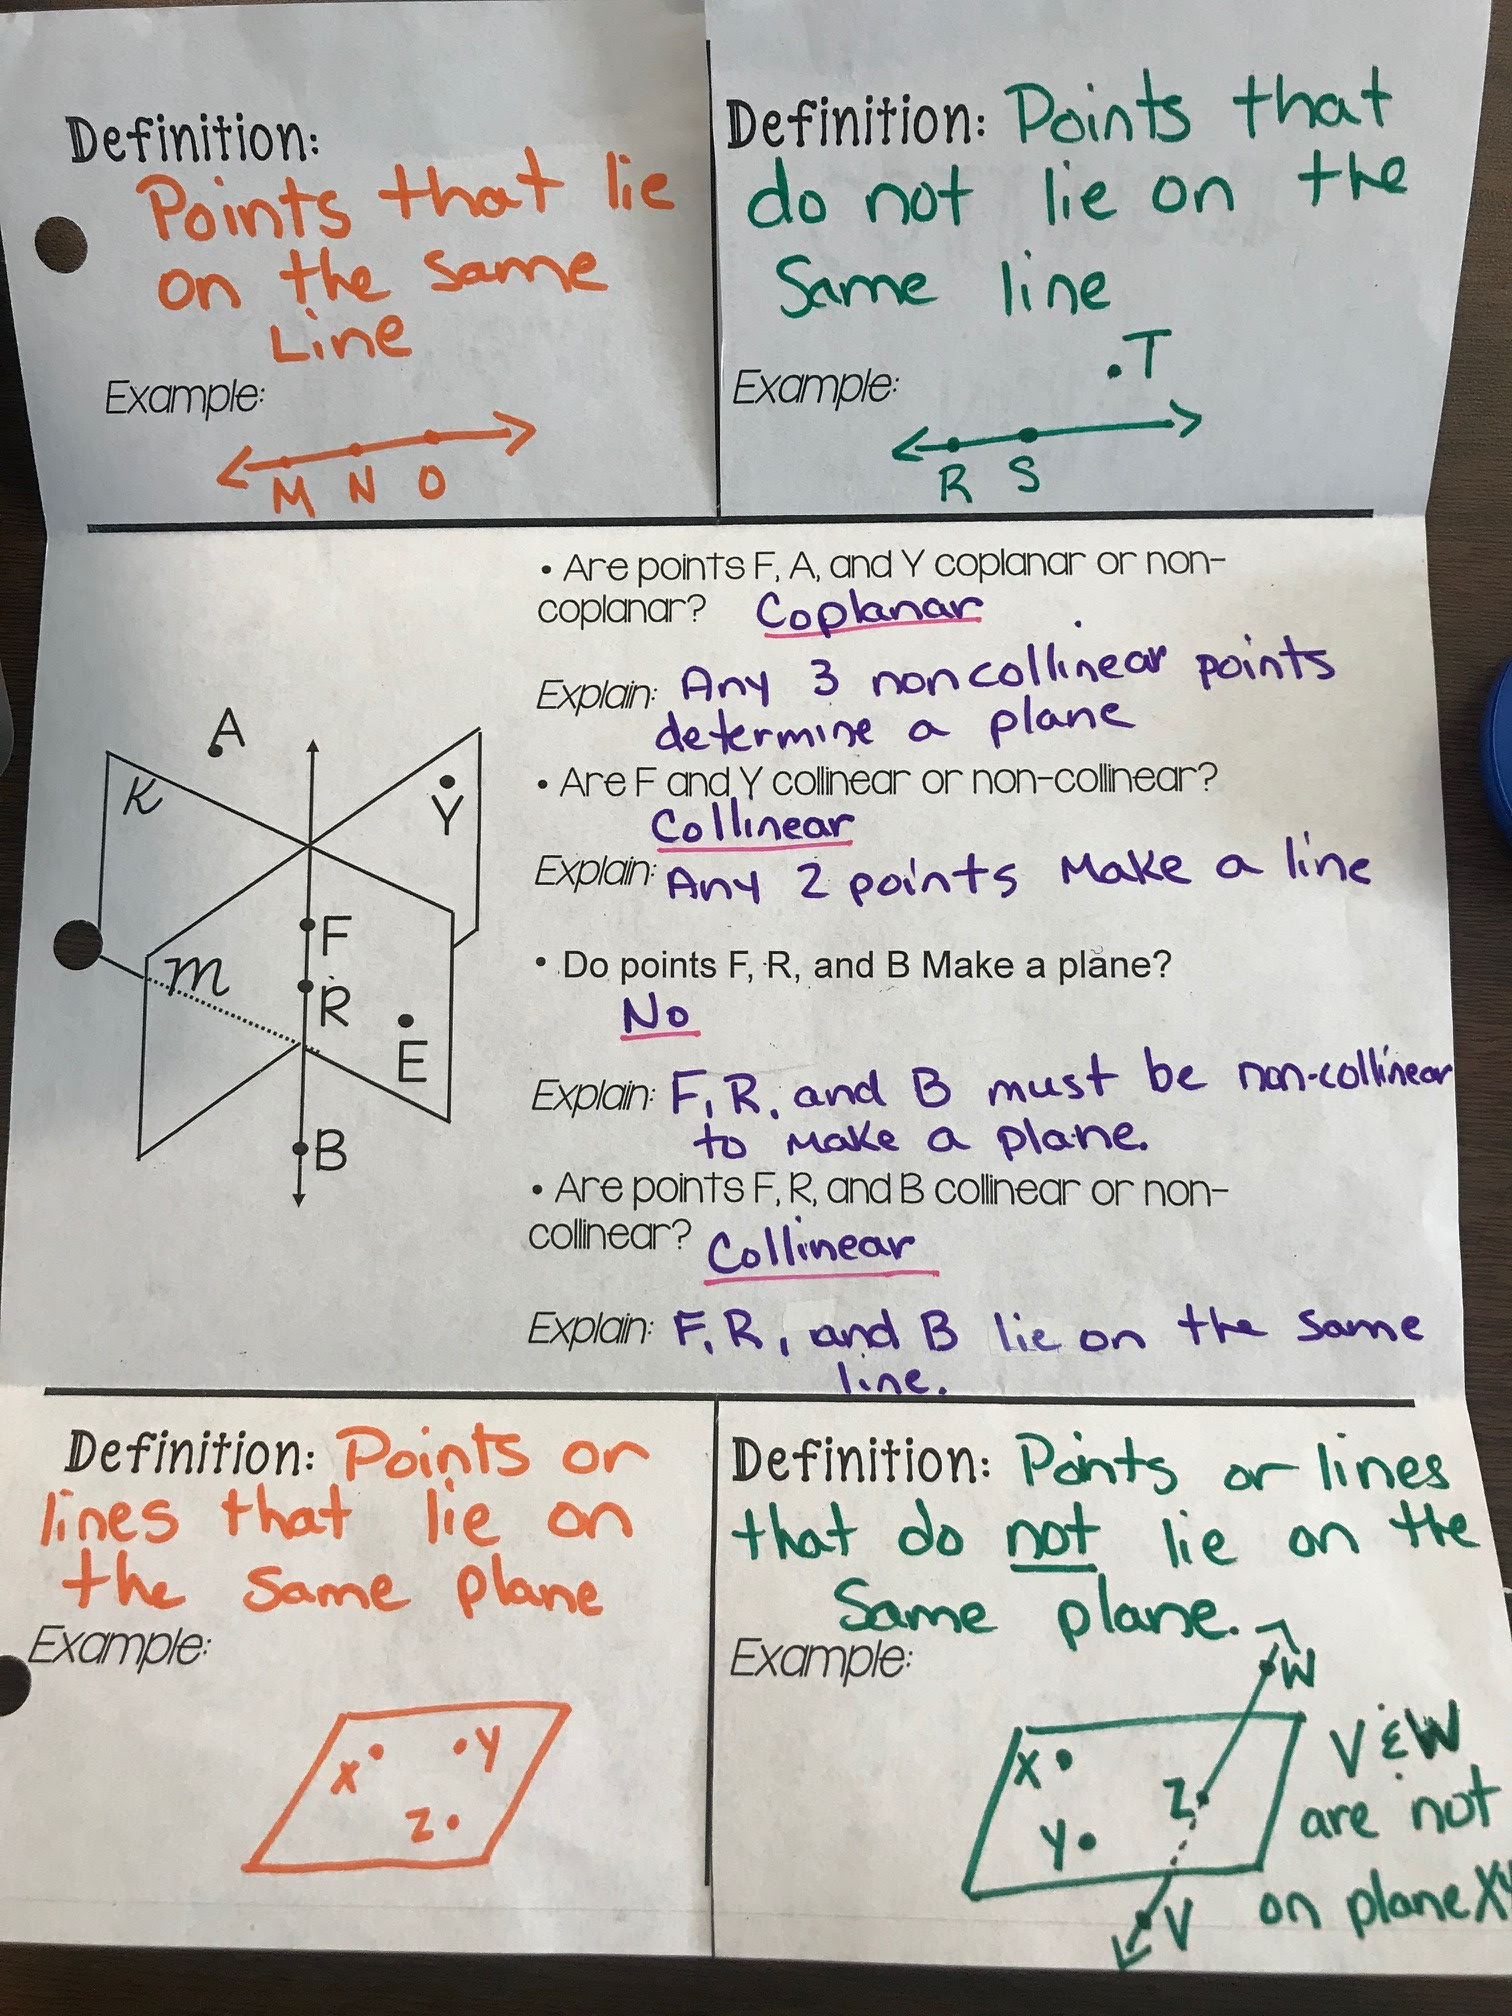 Definition:
Points that lie
on the same
Line
Example:
M N O
Definition: Points that
do not lie on the
Same line
.T
Example:
R S
• Are points F, A, and Y coplanar or non-
coplanar? Coplanar
Explain: Any 3 noncollinear points
determine a plane
• Are F and Y collinear or non-collinear?
Collinear
Explain: Any 2 points Make a line
• Do points F, R, and B Make a plane?
No
Explain: F, R, and B must be non-collinear
to make a plane.
• Are points F, R, and B collinear or non-
collinear? Collinear
Explain: F, R, and B lie on the same
line.
A
K
Y
F
M
R
E
B
Definition: Points or
lines that lie on
the same plane
Example:
X Y
Z
Definition: Points or lines
that do not lie on the
Same plane.
Example:
W
X
Z
Y
V
V & W
are not
on plane XY